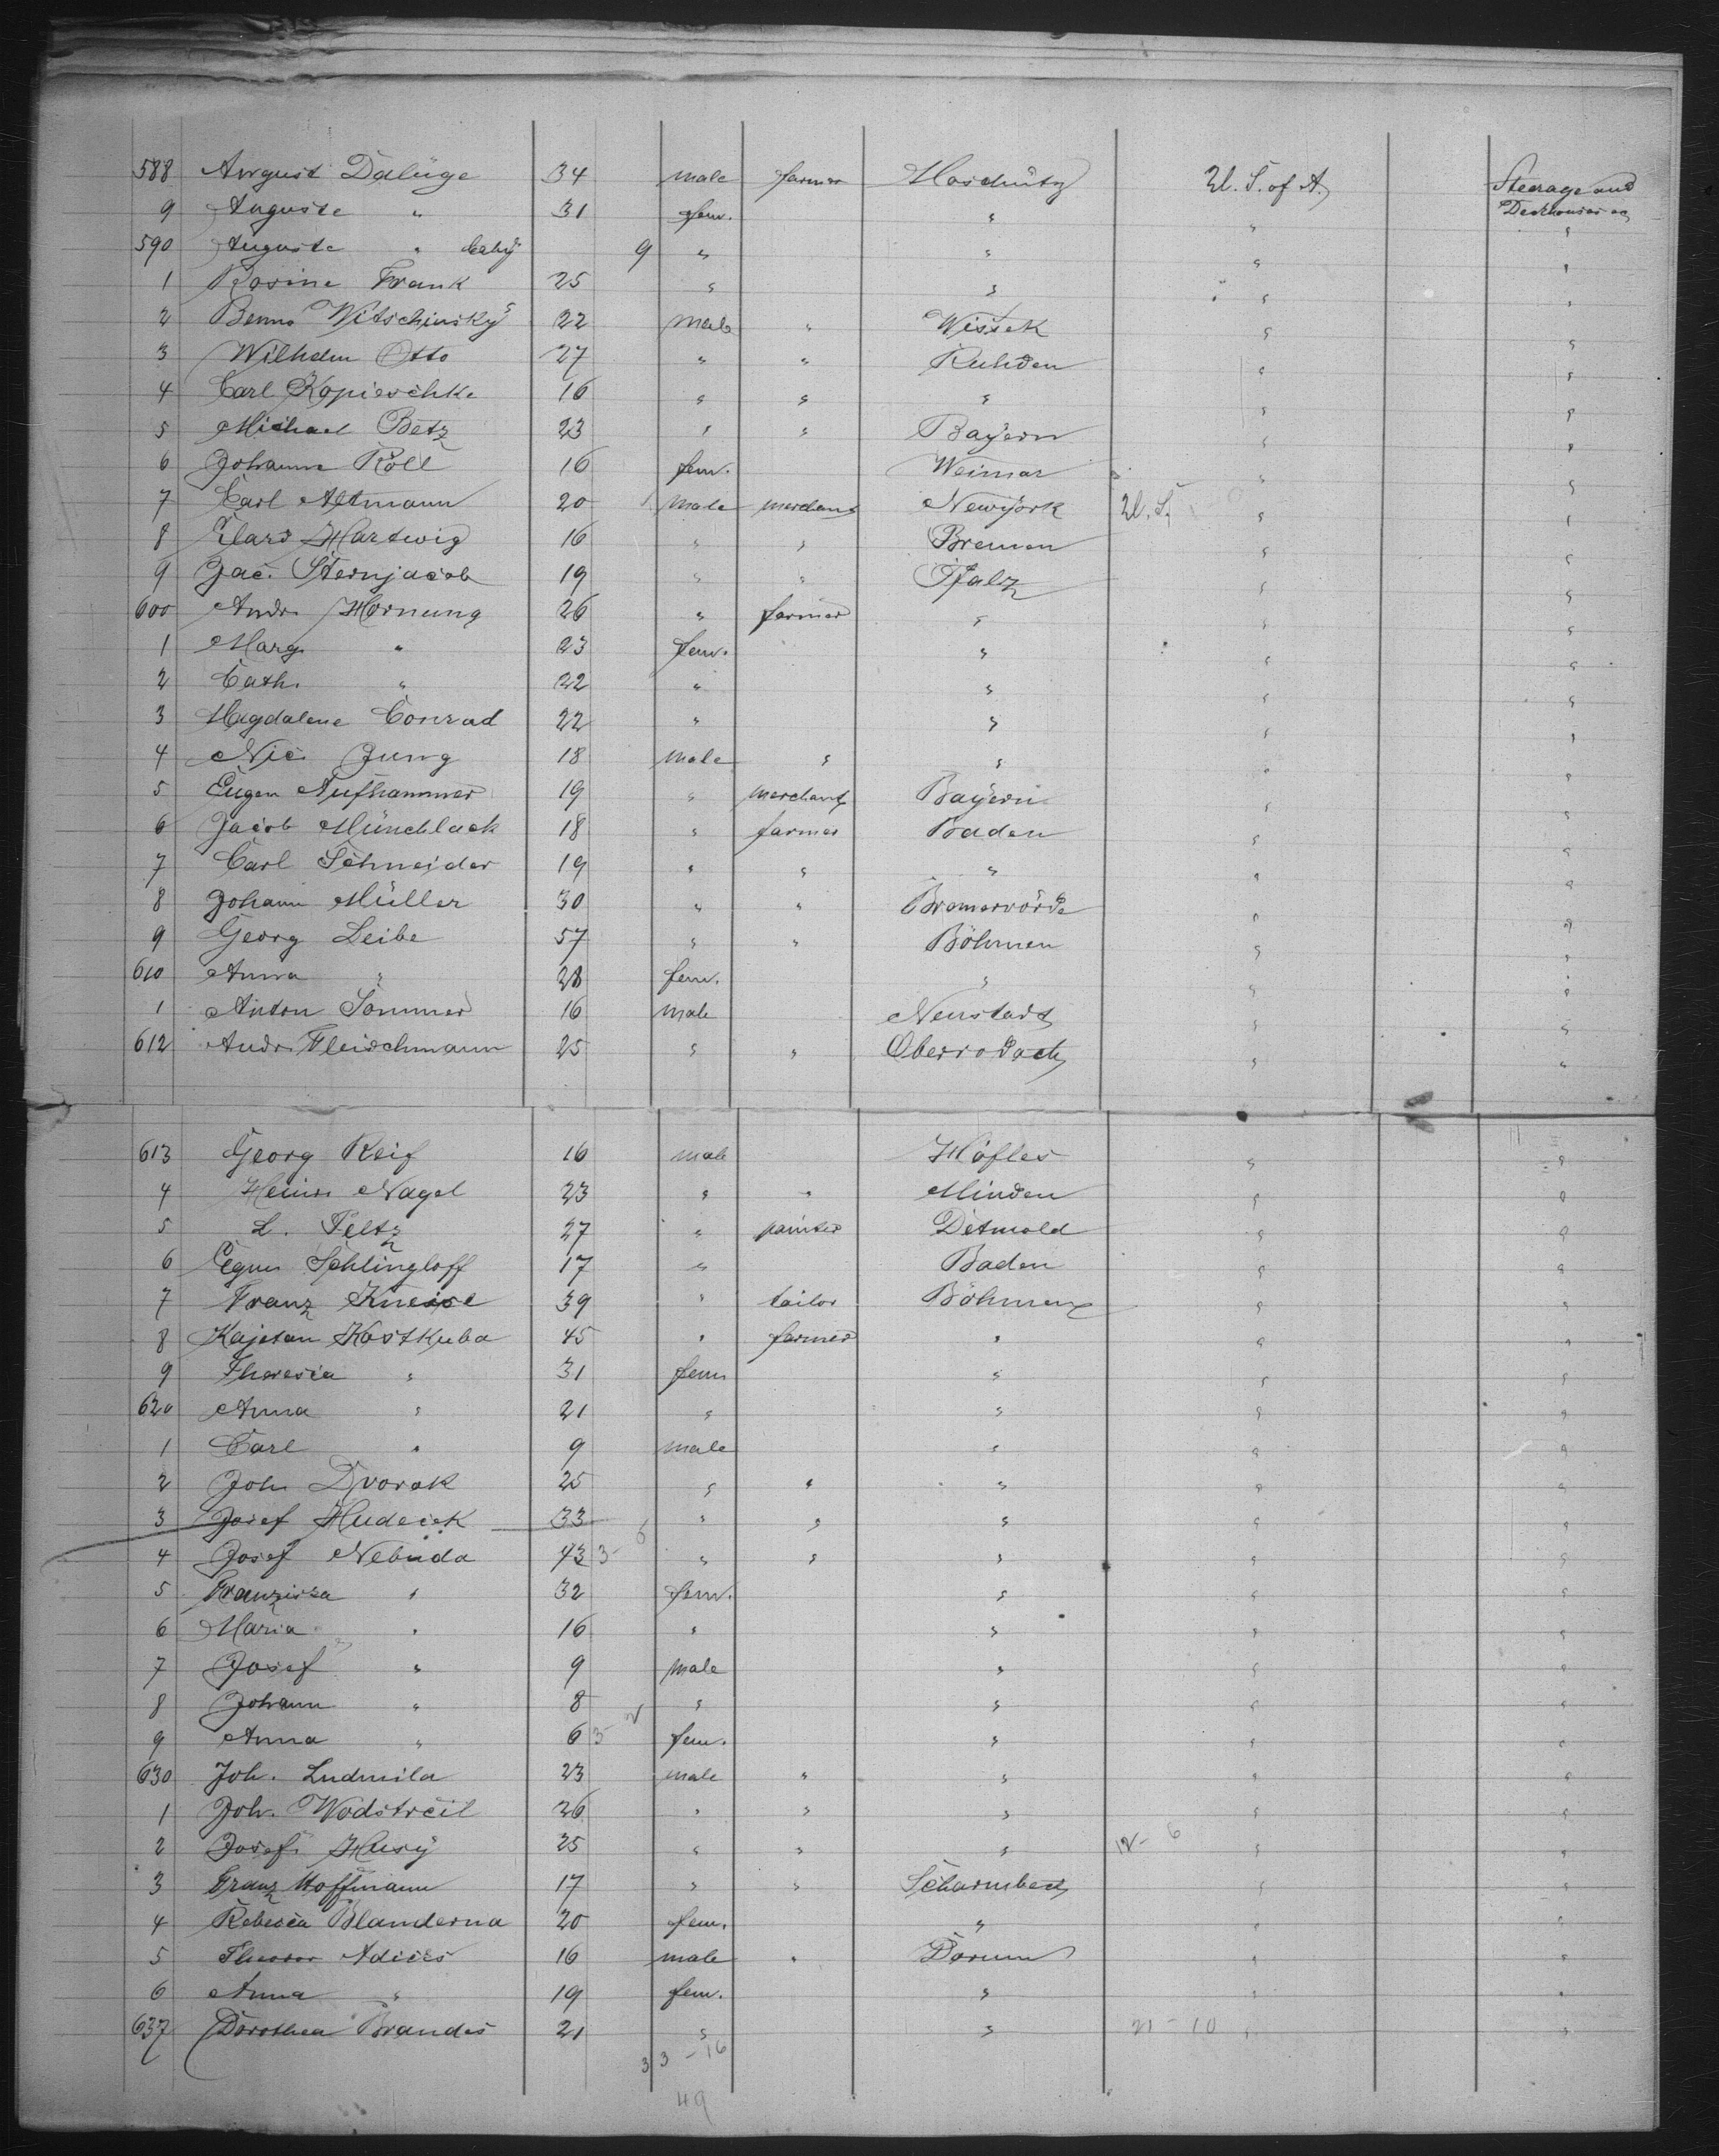 588 August Dalüge 34 male farmer Hoschütz U. S. of A. Steerage and
9 Auguste " 31 fem. " " Deckhouses "
590 Auguste " baby 9 " " " "
1 Rosine Frank 25 " " " "
2 Benno Witschinsky 22 male " Wissek " "
3 Wilhelm Otto 27 " " Ruhden " "
4 Carl Kopieschke 16 " " " " "
5 Michael Betz 23 " " Bayern " "
6 Johanna Röll 16 fem. Weimar " "
7 Carl Altmann 20 male merchant Newyork U. S. " "
8 Elard Hartwig 16 " " Bremen " "
9 Jac. Sternjacob 19 " " Pfalz " "
600 Andr. Hornung 26 " farmer " " "
1 Marg. " 23 fem. " " "
2 Cath. " 22 " " " "
3 Magdalene Conrad 22 " " " "
4 Nic. Jung 18 male " " " "
5 Eugen Aufhammer 19 " merchant Bayern " "
6 Jacob Münchlack 18 " farmer Baden " "
7 Carl Schneider 19 " " " " "
8 Johann Müller 30 " " Bremervörde " "
9 Georg Leibe 57 " " Böhmen " "
610 Anna " 28 fem. " " "
1 Anton Sommer 16 male Neustadt " "
612 Andr. Fleischmann 25 " " Oberrodach " "
613 Georg Reif 16 male Höfles " "
4 Heinr. Nagel 23 " " Minden " "
5 L. Feltz 27 " painter Detmold " "
6 Schlingloff 17 " Baden " "
7 Franz Kneise 39 " tailor Böhmen " "
8 Kajetan Kostkuba 45 " farmer " " "
9 Theresia " 31 fem. " " "
620 Anna " 21 " " " "
1 Carl " 9 male " " "
2 Joh. Dvorak 25 " " " " "
3 Josef Hudecek 33 6 " " " " "
4 Josef Nebuda 43 3 " " " " "
5 Franziska " 32 fem. " " "
6 Maria " 16 " " " "
7 Josef " 9 male " " "
8 Johann " 8 " " " "
9 Anna " 6 3 fem. " " "
630 Joh. Ludmila 23 male " " " "
1 Joh. Wodstrcil 26 " " " " "
2 Josef Husy 25 " " " 12 - 6 " "
3 Franz Hoffmann 17 " " Scharmbeck " "
4 Rebecca Blanderna 20 fem. " " "
5 Theodor Adices 16 male " Dorum " "
6 Anna " 19 fem. " " "
637 Dorothea Brandes 21 " " 21 - 10 " "
3 3 - 16
49